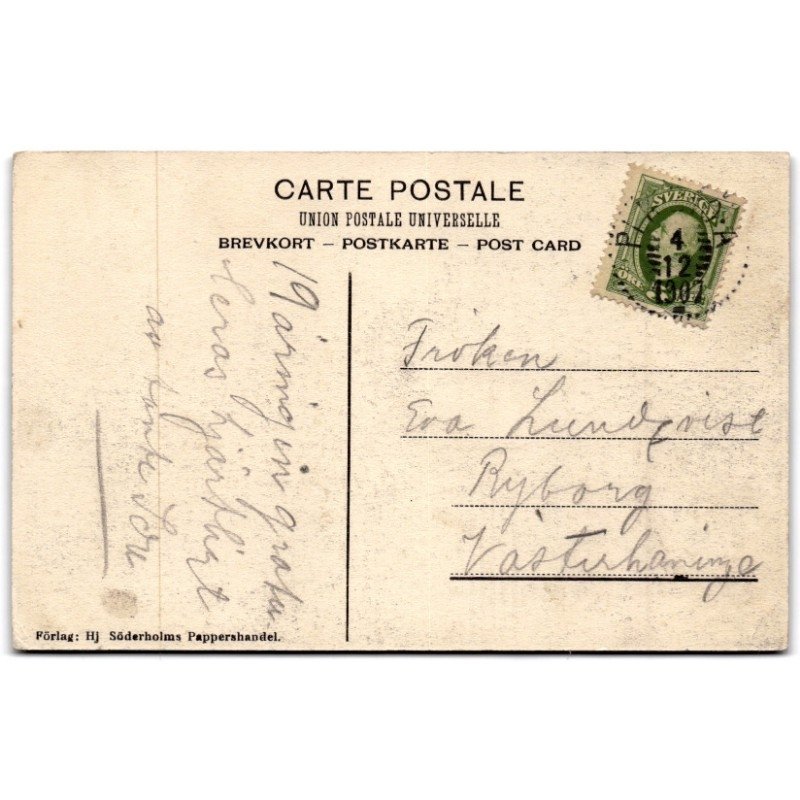 CARTE POSTALE
UNION POSTALE UNIVERSELLE
BREVKORT – POSTKARTE – POST CARD
SVERIGE
4
12
1907
Fröken
Eva Lundqvist
Ryborg
Västerhaninge
19 åringin gratu
leras hjärtligt
av tante
Förlag: Hj Söderholms Pappershandel.